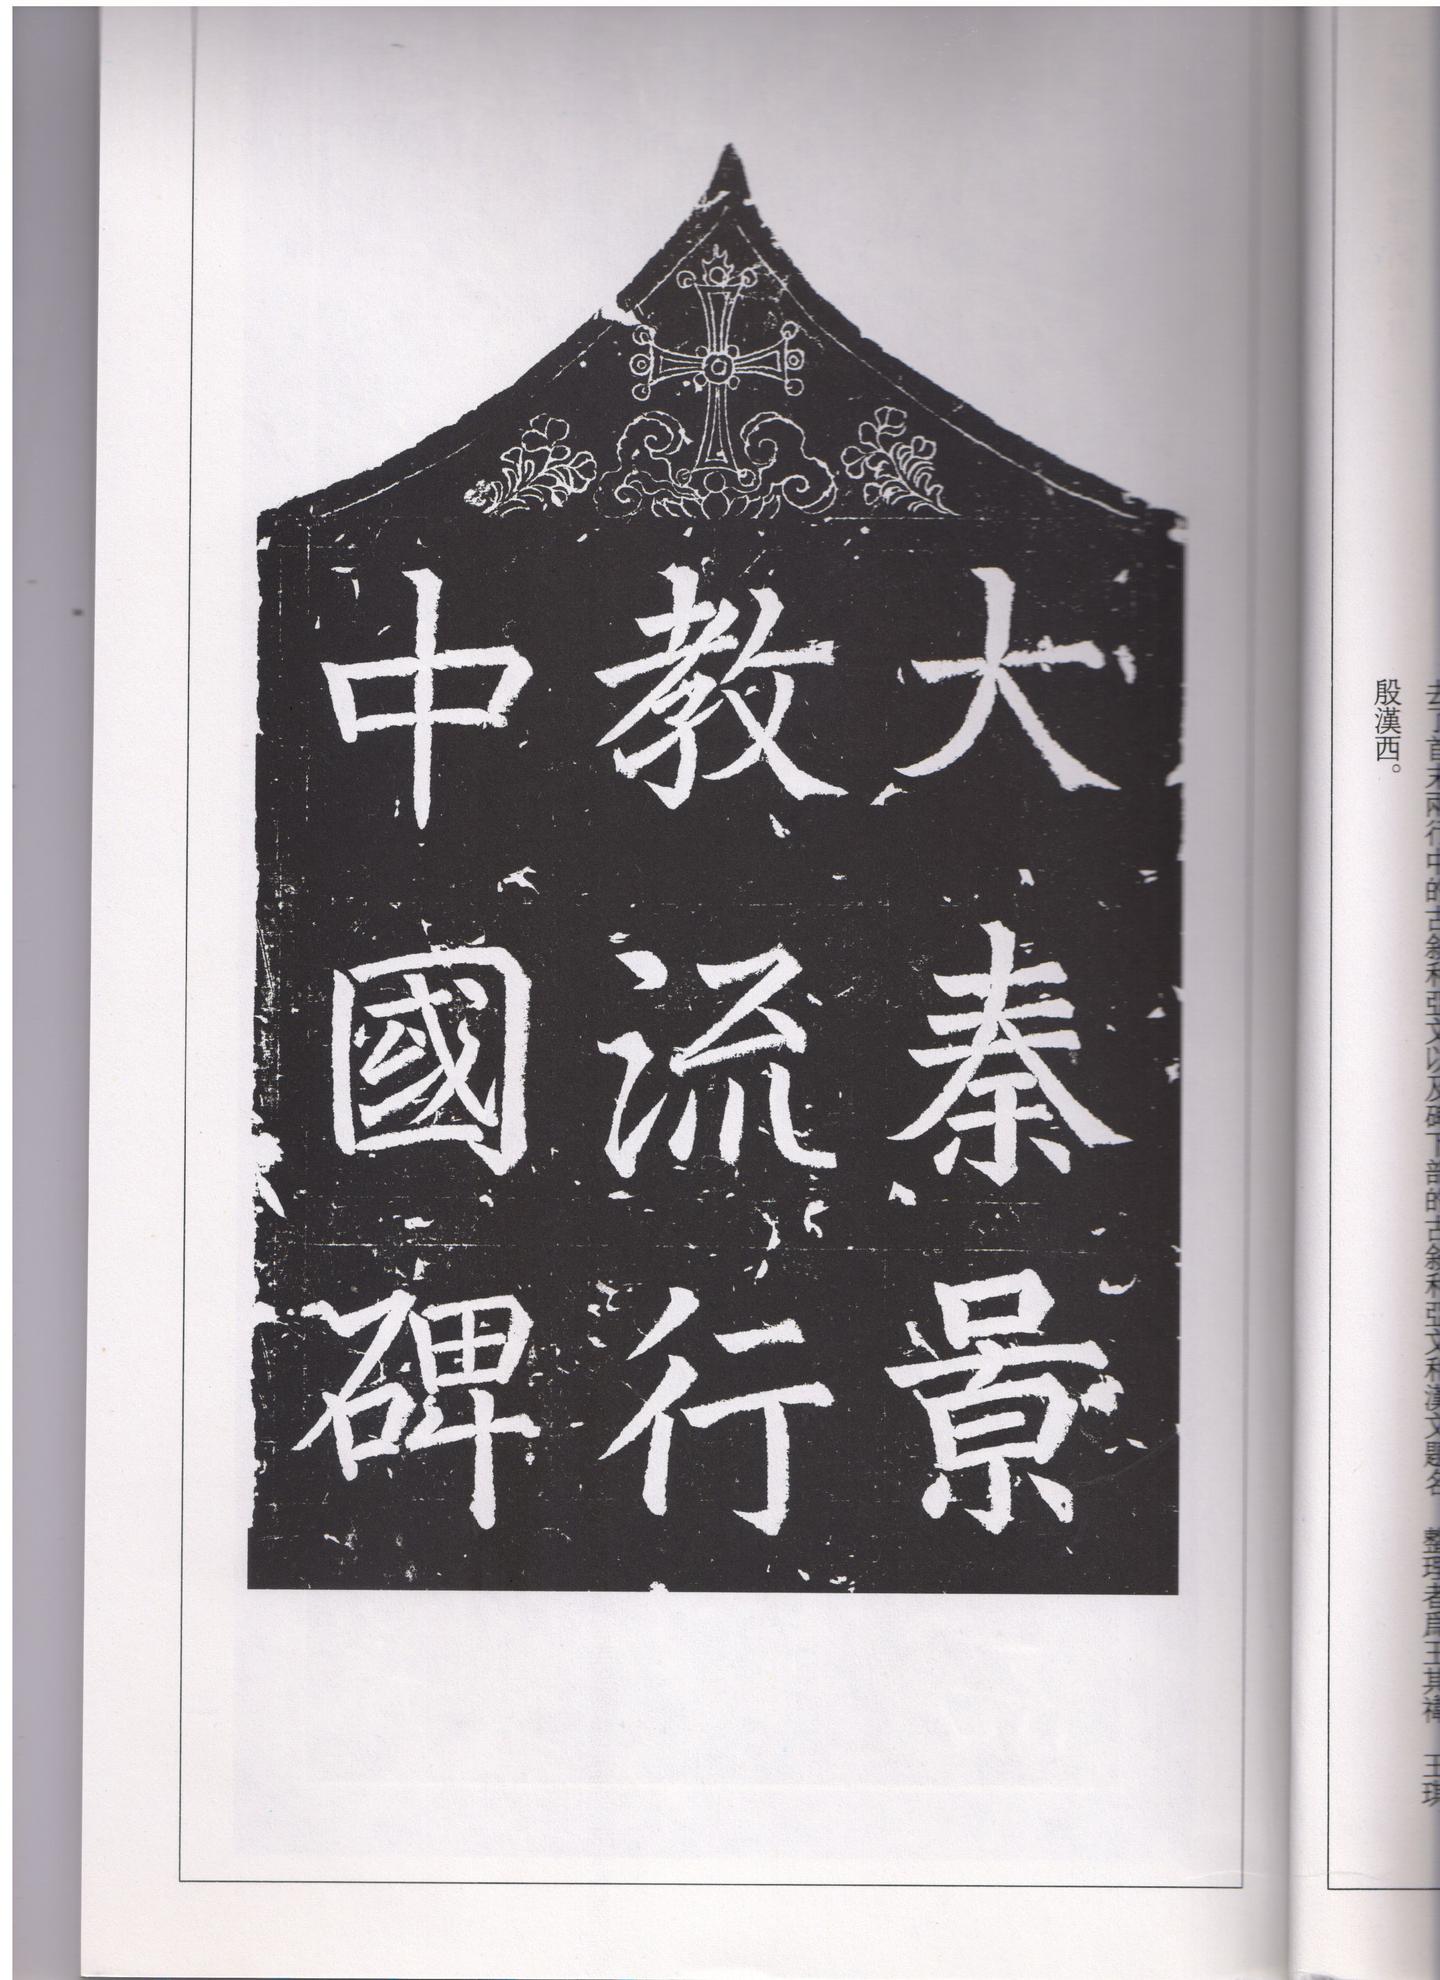 去了首末兩行中的古敘利亞文以及碑下部的古敘利亞文和漢文題名 整理者爲王其禕 王琪
殷漢西。
大秦景
教流行
中國碑